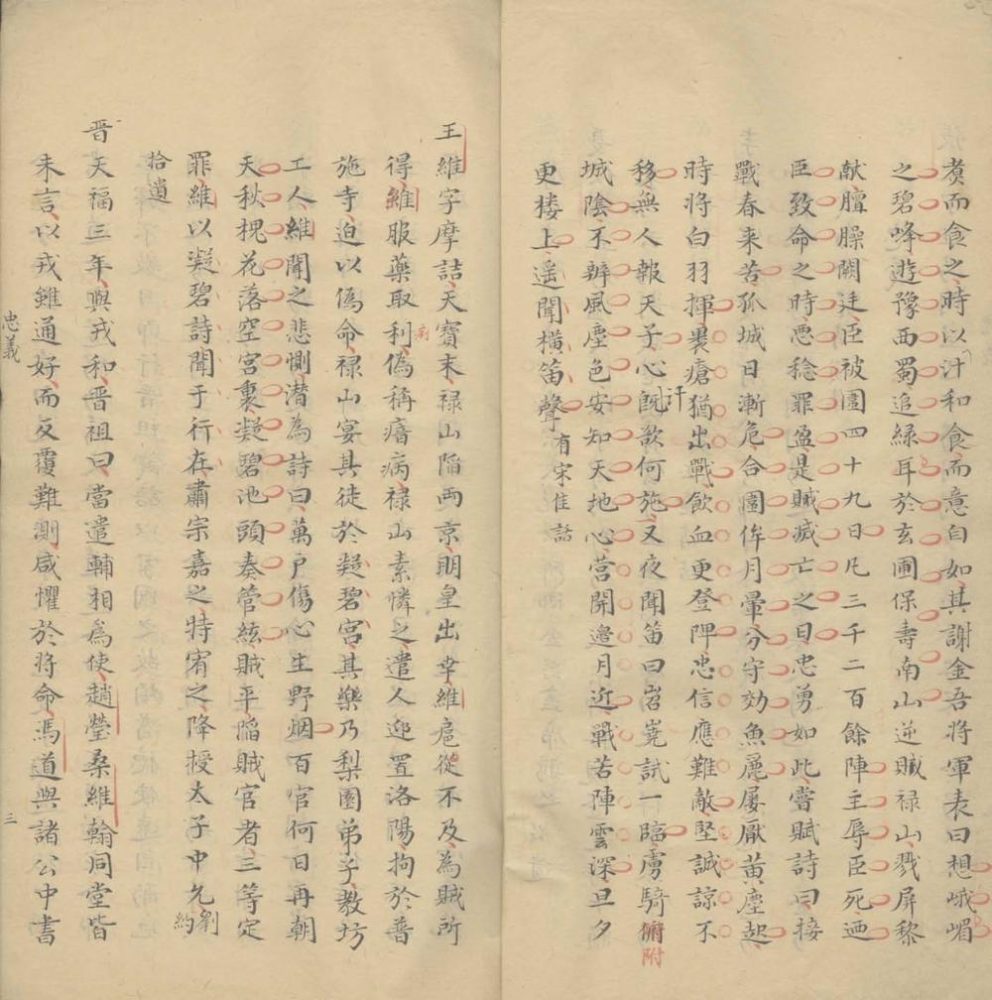 煑而食之時以汁和食而意自如其謝金吾將軍表曰想峨嵋
之碧峰遊豫西蜀追綠耳於玄圃保壽南山逆贼祿山戮屏黎
獻膻臊闕廷臣被圍四十九日凡三千二百餘陣主辱臣死迺
臣致命之時悪稔罪盈是贼滅亡之日忠勇如此嘗賦詩曰接
戰春来苦孤城日漸危合圍侔月暈分守効魚麗屢厭黃塵起
時將白羽揮裹瘡猶出戰飲血更登陴忠信應難敵堅誠諒不
移無人報天子心訐既欲何施又夜聞笛曰岧嶤試一臨虜騎俯附
城陰不辨風塵色安知天地心營開邉月近戰苦陣雲深旦夕
更楼上遥聞横笛聲有宋佳話
王維字摩詰天寳末祿山陷两京明皇出幸維扈從不及為賊所
得維服藥取利痢偽稱瘖病禄山素憐之遣人迎置洛陽拘於普
施寺迫以偽命禄山宴其徒於凝碧宫其樂乃梨園弟子教坊
工人維聞之悲惻潜為詩曰萬户傷心生野烟百官何日再朝
天秋槐花落空宫裏凝碧池頭奏管絃賊平陷賊官者三等定
罪維以凝碧詩聞于行在肅宗嘉之特宥之降授太子中允劉約
拾遺
晋天福三年與戎和晋祖曰當遣輔相為使趙瑩桑維翰同堂皆
未言以戎雖通好而反覆難測咸懼於將命馮道與諸公中書
忠義
三